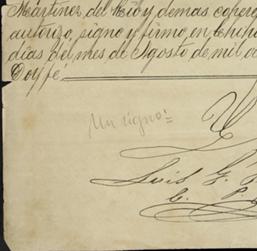 Martinez del Rio y demas copere
autorizo, signo y firmo, en Chihu
dias del mes de Agosto de mil o
Doy fé.
Un signo:
Luis G.